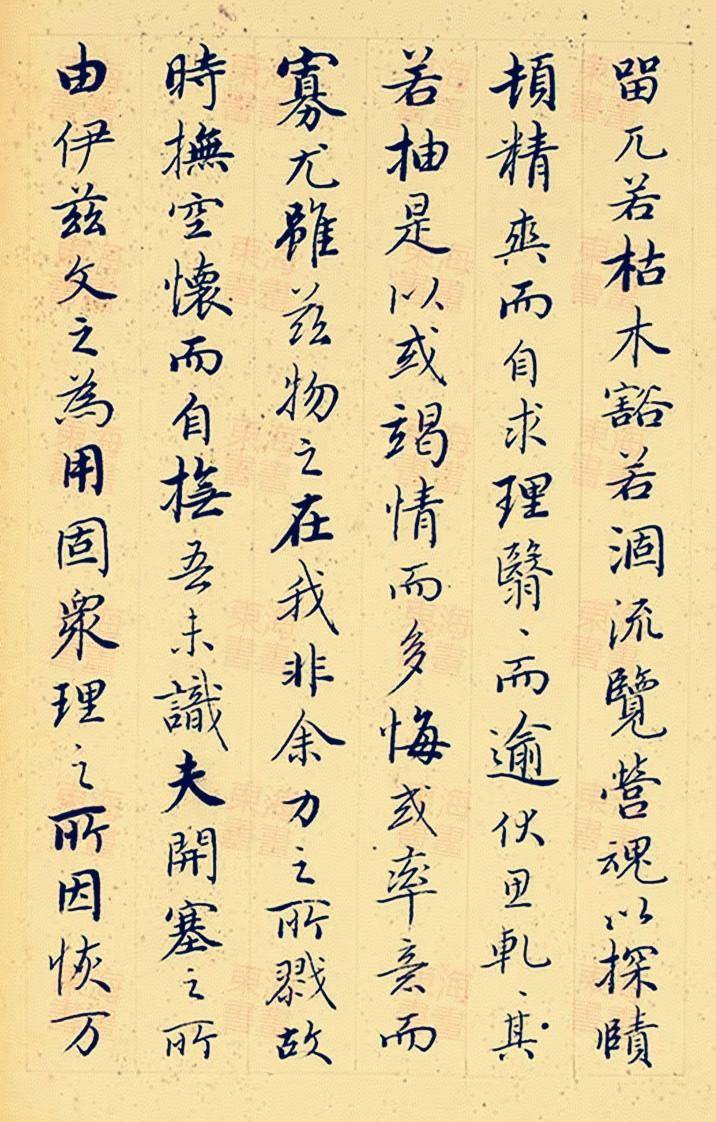 留兀若枯木豁若涸流覽營魂以探賾
頓精爽而自求理翳丶而逾伏思軋丶其
若抽是以或竭情而多悔或率意而
寡尤雖茲物之在我非余力之所戮故
時撫空懷而自撫吾未識夫開塞之所
由伊茲文之為用固衆理之所因恢万